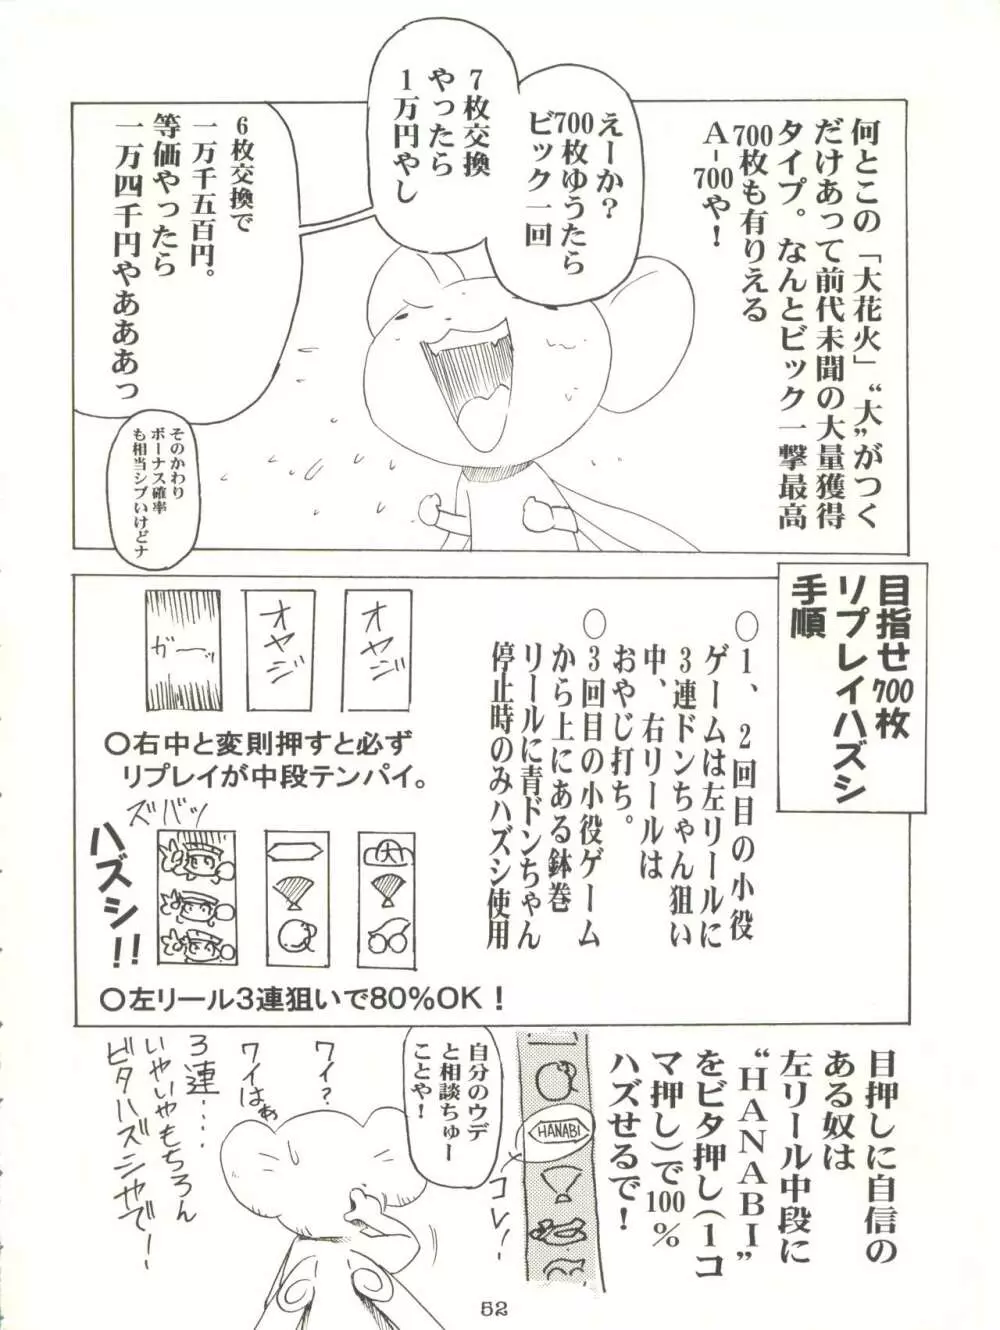 何とこの「大花火」“大”がつく
だけあって前代未聞の大量獲得
タイプ。なんとビック一撃最高
700枚も有りえる
A-700や!
えーか?
700枚ゆうたら
ビック一回
7枚交換
やったら
1万円やし
6枚交換で
一万千五百円。
等価やったら
一万四千円やあああっ
そのかわり
ボーナス確率
も相当シブいけどナ
目指せ700枚
リプレイハズシ
手順
○1、2回目の小役
ゲームは左リールに
3連ドンちゃん狙い
中、右リールは
おやじ打ち。
○3回目の小役ゲーム
から上にある鉢巻
リールに青ドンちゃん
停止時のみハズシ使用
オヤジ
オヤジ
ガーッ
○右中と変則押すと必ず
リプレイが中段テンパイ。
ズバッ
ハズシ!!
大
○左リール3連狙いで80%OK!
目押しに自信の
ある奴は
左リール中段に
“HANABI”
をビタ押し(1コ
マ押し)で100%
ハズせるで!
HANABI
コレ!
自分のウデ
と相談ちゅー
ことや!
ワイ?
ワイはぁ
3連‥‥
いやいやもちろん
ビタハズシやで!
52